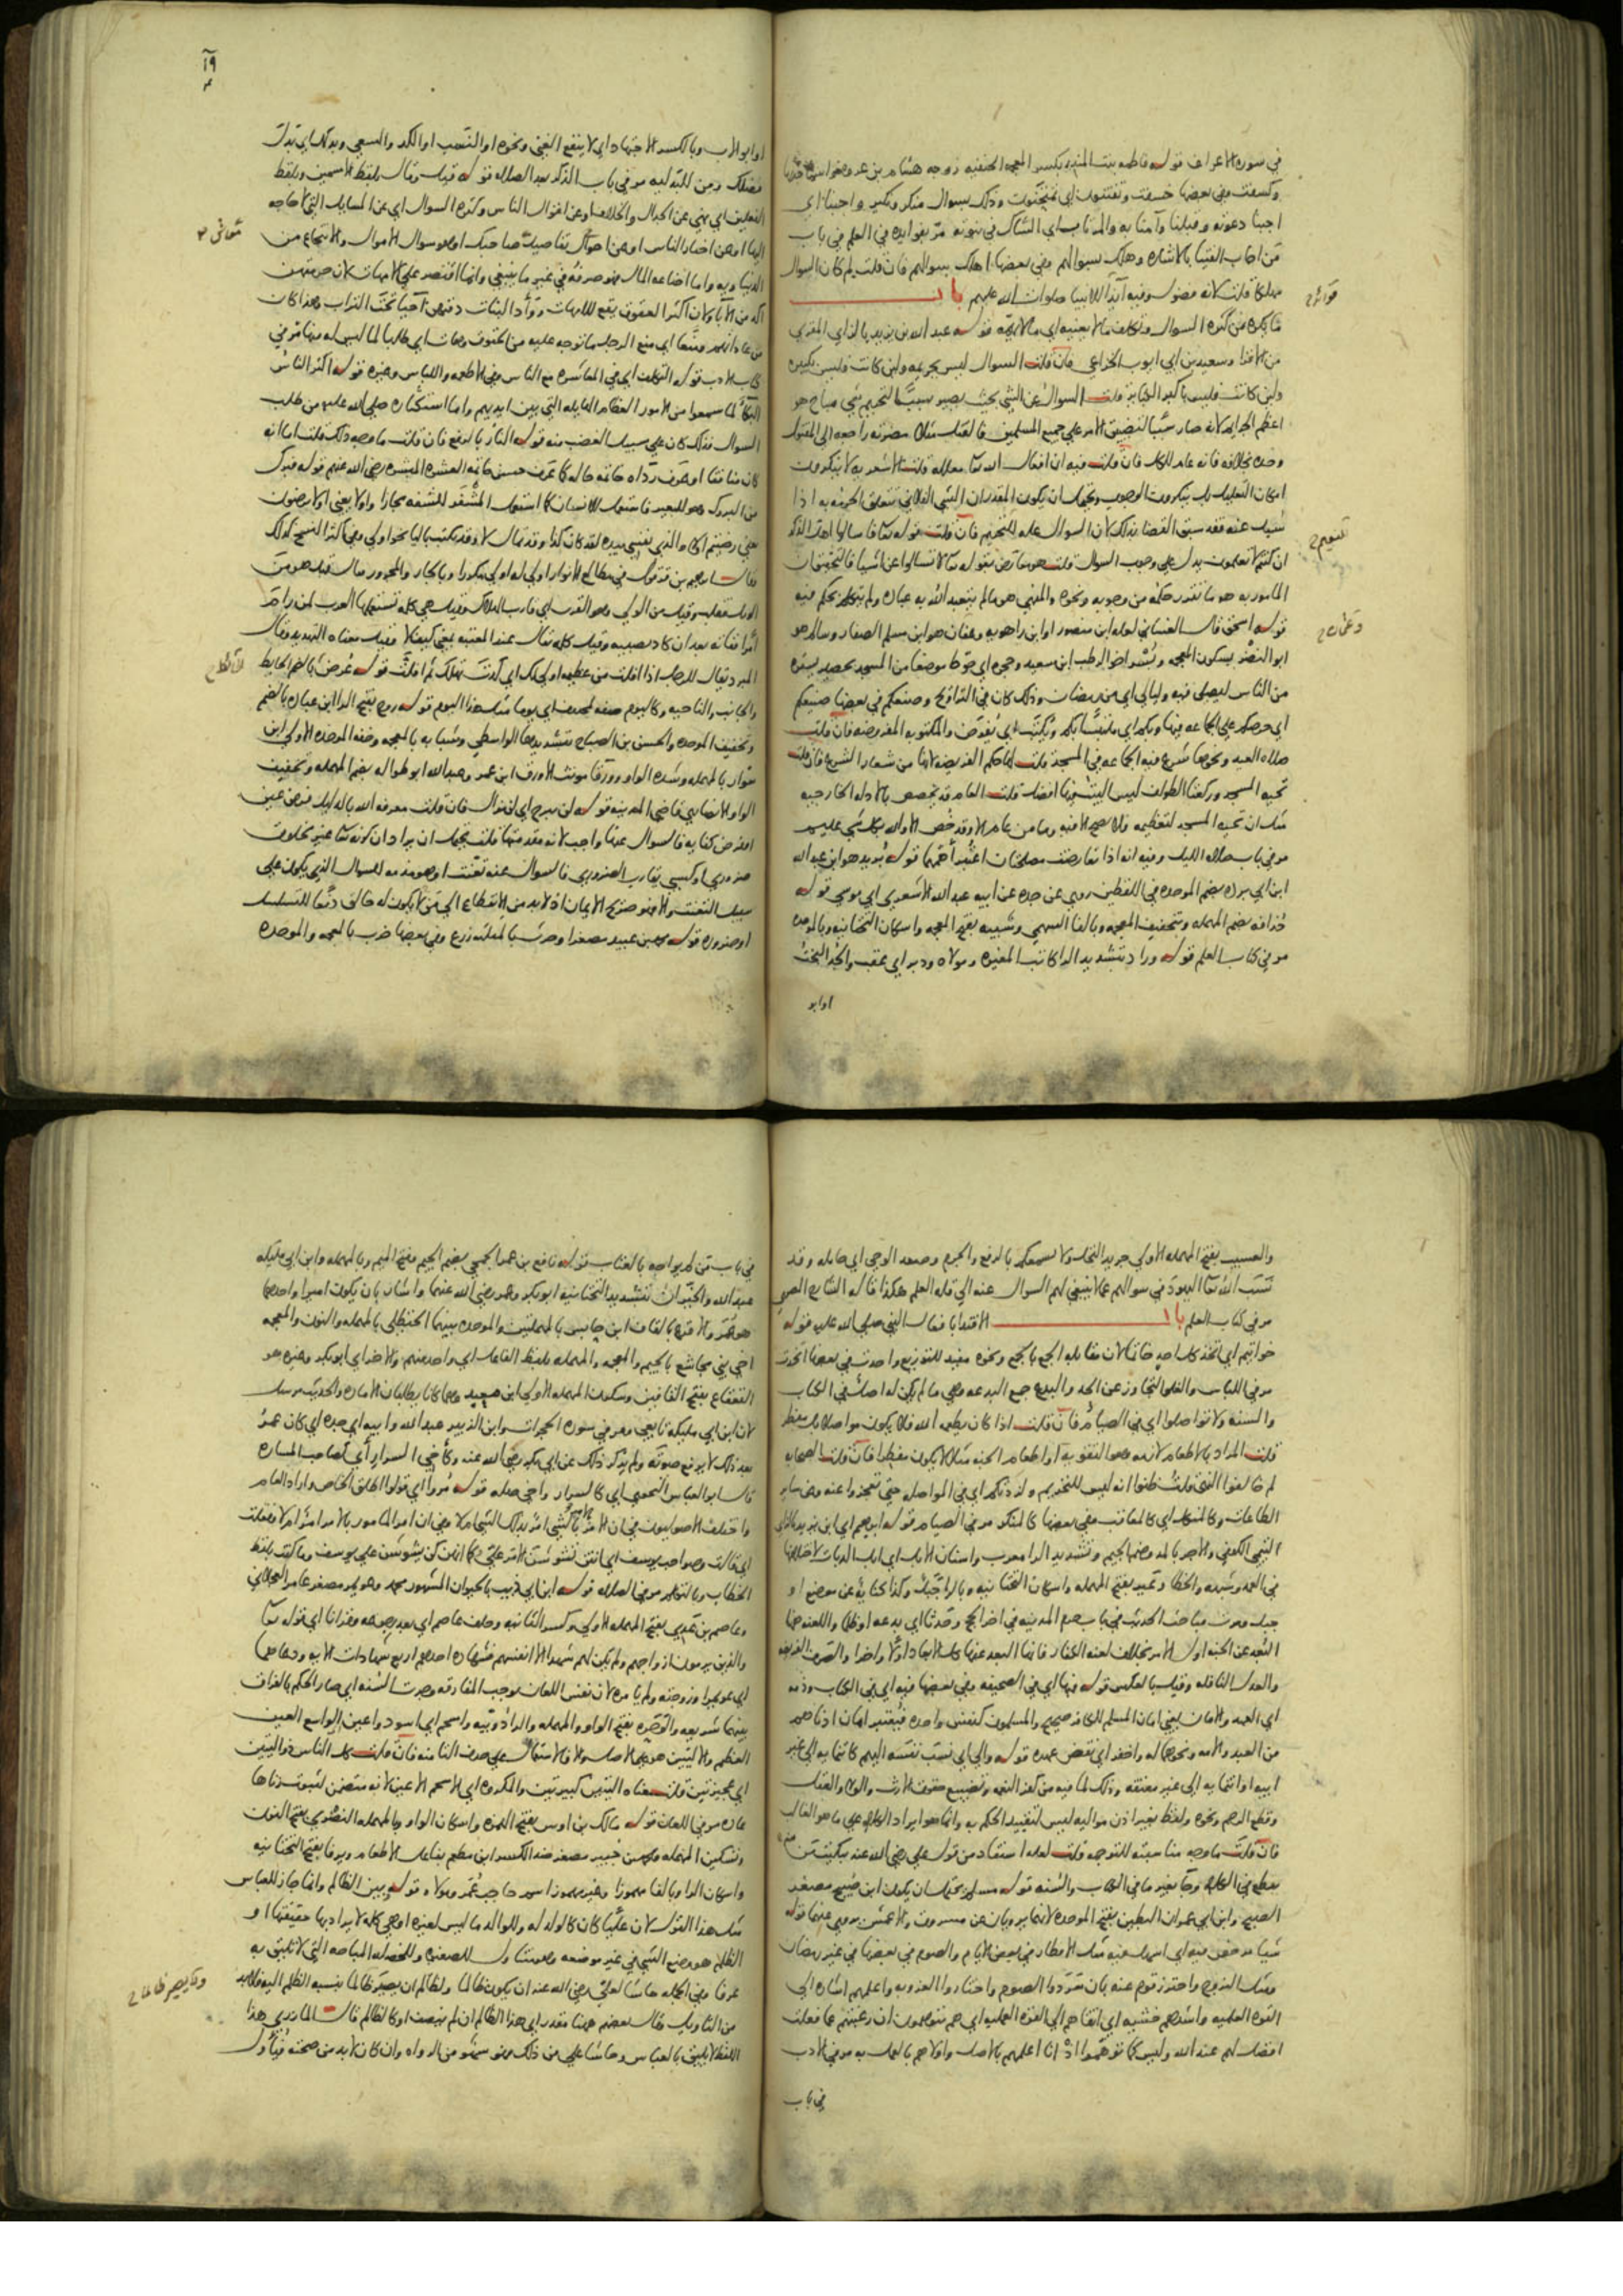 في سورة الاعراف قوله فاطمة بنت المنذر بكسر المعجمة الخفيفة زوجة هشام بن عروة
وكسفت وفي بعضها خسفت وتفتنون اي تمتحنون وذلك بسوال منكر ونكير واجبنا اي
اجبنا دعوته وقبلنا وآمنا به والمرتاب اي الشاك في نبوته مر بفوائده في العلم في باب
من اجاب الفتيا بالاشارة وهلك بسوالهم وفي بعضها اهلك سوالهم فان قلت لم كان السوال
مهلكا قلت لانه فضول وفيه ايذا للانبيا صلوات الله عليهم باب
ما يكره من كثرة السوال وتكلف ما لا يعنيه اي ما لا يهمه قوله عبد الله بن يزيد بالزاي المقري
من الاقرا وسعيد بن ابي ايوب الخزاعي فان قلت السوال ليس بجريمة ولين كانت فليس بكبيرة
ولين كانت فليس باكبر الكباير قلت السوال عن الشي بحيث يصير سببا لتحريم شي مباح هو
اعظم الجرايم لانه صار سببا لتضييق الامر على جميع المسلمين فالقتل مثلا مضرته راجعة الى المقتول
وحده بخلافه فانه عام للكل فان قلت فيه ان افعال الله تعا معللة قلت الاشعرية لا ينكرون
امكان التعليل بل ينكرون الوجوب ويحتمل ان يكون المقدر ان الشي الفلاني تتعلق الحرمة به اذا
سيل عنه فقد سبق القضا بذلك لا ان السوال علة للتحريم فان قلت قوله تعا فاسالوا اهل الذكر
ان كنتم لا تعلمون يدل على وجوب السوال قلت هو معارض بقوله تعا لا تسالوا عن اشيا فالتحقيق ان
المامور به هو ما تقرر حكمه من وجوبه ونحوه والمنهي هو ما لم يتعبد الله به عباده ولم يتكلم بحكم فيه
قوله اسحق قال الغساني لعله ابن منصور او ابن راهويه وعفان هو ابن مسلم الصفار وسالم هو
ابو النضر بسكون المعجمة وبسر اخو الرطب ابن سعيد وحجره اي حوط موضعا من المسجد بحصير يستره
من الناس ليصلي فيه وليالي اي من رمضان وذلك كان في التراويح وصنعكم في بعضها صنيعكم
اي حرصكم على الجماعة فيها وبكم اي ملتبسا بكم ويكتب اي يفرض والمكتوبة المفروضة فان قلت
صلاة العيد ونحوها شرع فيه الجماعة في المسجد قلت لها حكم الفريضة لانها من شعار الشرع فان قلت
تحية المسجد وركعتا الطواف ليس البيت فيها افضل قلت العام قد يخصص بالادلة الخارجية
مثل ان تحية المسجد لتعظيمه فلا تصح الا فيه وما من عام الا وقد خص الا والله بكل شي عليم
مر في باب صلاة الليل وفيه انه اذا تعارضت مصلحتان اعتبر اهمهما قوله بريد هو ابن عبد الله
ابن ابي بردة بضم الموحدة في اللفظين روى عن جده عن ابيه عبد الله الاشعري ابي موسى قوله
حذافة بضم المهملة وتخفيف المعجمة وبالفا السهمي وشيبة بفتح المعجمة واسكان التحتانية وبالموحدة
مر في كتاب العلم قوله وراد بتشديد الرا كاتب المغيرة ومولاه ودبر اي عقب والجد البخت
اوابو
او ابو الاب وبالكسر الاجتهاد اي لا ينفع الغني ونحوه او النسب او الكد والسعي وبدلك اي بدل
فضلك ومن للبدلية مر في باب الذكر بعد الصلاة قوله قيل وقال بلفظ الاسمين وبلفظ
الفعلين اي نهى عن الجدال والخلاف او عن اقوال الناس وكثرة السوال اي عن المسايل التي لا حاجة
اليها او عن اخبار الناس او عن احوال تفاصيل صاحبك او هو سوال الاموال والانتجاع من
الدنياوية واما اضاعة المال فهو صرفه في غير ما ينبغي وانما اقتصر على الامهات لان حرمتهن
اكد من الآبا ولان اكثر العقوق يقع للامهات ووأد البنات دفنهن احيا تحت التراب وهذا كان
من عاداتهم ومنعا اي منع الرجل ما توجه عليه من الحقوق وهات اي طالبا لما ليس له منها مر في
كتاب الادب قوله التكلف اي في المعاشرة مع الناس وفي الاطعمة واللباس وغيره قوله اكثر الناس
البكا لما سمعوا من الامور العظام الهايلة التي بين ايديهم واما استكثاره صلى الله عليه من طلب
السوال فذلك كان على سبيل الغضب منه قوله النار بالرفع فان قلت ما وجه ذلك قلت اما انه
كان منافقا او عرف رداة خاتمة حاله كما عرف حسن خاتمة العشرة المبشرة رضي الله عنهم قوله فبرك
من البروك وهو للبعير فاستعمل للانسان كما استعمل المشفر للشفة مجازا واولا يعني الا ترضون
يعني رضيتم اولا والذي نفسي بيده لقد كان كذا وقد قال لا وقد يكتب باليا نحو اولي وفي اكثر النسخ كذلك
وقال ابرهيم بن قرقول في مطالع الانوار اولى له اولى مكررا وبالجار والمجرور قال قيل هو من
الويل فقلب وقيل من الولي وهو القرب اي قارب الهلاك وقيل هي كلمة تستعملها العرب لمن رام
امرا ففاته بعد ان كاد يصيبه وقيل كلمة تقال عند المعتبة بمعنى كيف لا وقيل معناه التهديد وقال
المبرد يقال للرجل اذا افلت من عظيمة اولى لك اي كدت تهلك ثم افلت قوله عرض بالضم الحايط
والجانب والناحية وكاليوم صفة لمحذوف اي يوما مثل هذا اليوم قوله روح بفتح الرا ابن عبادة بالضم
وتخفيف الموحدة والحسن بن الصباح بتشديدها الواسطي وشبابة بالمعجمة وخفة الموحدة الاولى ابن
سوار بالمهملة وشدة الواو وورقا مونث الاورق ابن عمر وعبد الله ابو طوالة بضم المهملة وتخفيف
الواو الانصاري قاضي المدينة قوله لن يبرح اي لن يزال فان قلت معرفة الله بالدليل فرض عين
او فرض كفاية فالسوال عنها واجب لانه مقدمتها قلت يحتمل ان يراد ان كونه تعا غير مخلوق
ضروري او كسبي يقارب الضروري فالسوال عنه تعنت او هو مذمة للسوال الذي يكون على
سبيل التعنت والا فهو صريح الايمان اذ لا بد من الانقطاع الى من لا يكون له خالق دفعا للتسلسل
او ضرورة قوله محمد بن عبيد مصغرا وحرث بالمثلثة زرع وفي بعضها خرب بالمعجمة والموحدة
والعسيب بفتح المهملة الاولى جريد النخل ولا يسمعكم بالرفع والجزم وصعد الوحي اي حامله وقد
نسب الله تعا اليهود في سوالهم عما لا ينبغي لهم السوال عنه الى قلة العلم هكذا قاله
مر في كتاب العلم باب الاقتدا بافعال النبي صلى الله عليه قوله
خواتيم اي اتخذ كل احد خاتما لان مقابلة الجمع بالجمع ونحوه مفيد للتوزيع
مر في اللباس والغلو التجاوز عن الحد والبدع جمع البدعة وهي ما لم يكن له اصل في الكتاب
والسنة ولا تواصلوا اي في الصيام فان قلت اذا كان يطعمه الله فلا يكون مواصلا بل مفطر
قلت المراد بالاطعام لازمه وهو التقوية او اطعام الجنة مثلا لا يكون مفطرا فان قلت الصحابة
لم خالفوا النهي قلت ظنوا انه ليس للتحريم ولزدتكم اي في المواصلة حتى تعجزوا عنه وعن ساير
الطاعات وكالمنكل اي كالمعاقب وفي بعضها كالمنكر مر في الصيام قوله ابراهيم اي ابن يزيد
التيمي الكوفي والآجر بالمد وضم الجيم وتشديد الرا معرب واسنان الابل اي ابل الديات لاختلافها
في العمد وشبهه والخطا وعير بفتح المهملة واسكان التحتانية وبالرا جبل وكذا كناية عن موضع او
جبل ومرت مباحث الحديث في باب حرم المدينة في اخر الحج وحدثا اي بدعة او ظلما واللعنة هنا
البعد عن الجنة اول الامر بخلاف لعنة الكفار فانها البعد عنها كل الابعاد اولا واخرا والصرف الفريضة
والعدل النافلة وقيل بالعكس قوله فيها اي في الصحيفة وفي بعضها فيه اي في الكتاب وذمة
اي العهد والامان يعني امان المسلم للكافر صحيح والمسلمون كنفس واحدة فيعتبر امان ادناهم
من العبد والامة ونحوهما له واخفر اي نقض عهده قوله والى اي نسب نفسه اليهم كانتمايه الى غير
ابيه او انتمايه الى غير معتقه وذلك لما فيه من كفر النعمة وتضييع حقوق الارث والولا والعقل
وقطع الرحم ونحوه ولفظ بغير اذن مواليه ليس لتقييد الحكم به وانما هو ايراد الكلام على ما هو الغالب
فان قلت ما وجه مناسبته للترجمة قلت لعله استفاد من قول علي رضي الله عنه تبكيت من
تنطع في الكلام وجا بغير ما في الكتاب والسنة قوله مسلم يحتمل ان يكون ابن صبيح مصغر
الصبح وابن ابي عمران البطين بفتح الموحدة لانهما يرويان عن مسروق والاعمش يروي عنهما قوله
شيا ترخص فيه اي اسهل فيه مثل الافطار في بعض الايام والصوم في بعضها في غير رمضان
ومثل التزوج واحترز قوم عنه بان سردوا الصوم واختاروا العزوبة واعلمهم اشارة الى
القوة العلمية واشدهم خشية اي اتقاهم الى القوة العملية اي هم يتوهمون ان رغبتهم عما فعلت
افضل لهم عند الله وليس كما توهموا اذ انا اعلمهم بالاصل واولاهم بالعمل به مر في الادب
في باب
في باب من لم يواجه بالعتاب قوله نافع بن عمر الجمحي بضم الجيم وفتح الميم وبالمهملة وابن ابي مليكة
عبد الله والخيران بتشديد التحتانية ابو بكر وعمر رضي الله عنهما واشار بان يكون اميرا واحدهما
هو عمر والاقرع بالقاف ابن حابس بالمهملتين والموحدة بينهما الحنظلي بالمهملة والنون والمعجمة
اخي بني مجاشع بالجيم والمعجمة والمهملة بلفظ الفاعل اي واحد منهم والاخر اي ابو بكر وغيره هو
القعقاع بفتح القافين وسكون المهملة الاولى ابن معبد وهما كانا يطلبان الامارة والحديث مرسل
لان ابن ابي مليكة تابعي ومر في سورة الحجرات وابن الزبير عبد الله وابيه اي جده اي كان عمر
بعد ذلك لا يرفع صوته ولم يذكر ذلك عن ابي بكر رضي الله عنه وكاخي السرار اي كصاحب المسارة
قال ابو العباس النحوي اي كالسرار واخي صلة قوله مروا اي قولوا اطلق الخاص واراد العام
واختلف الاصوليون في ان الامر بالامر بالشي امر بذلك الشي ام لا
اي قالت وصواحب يوسف اي انتن تشوشن الامر علي كما انهن كن يشوشن على يوسف وما كنت بلفظ
الخطاب وبالتكلم مر في الصلاة قوله ابن ابي ذيب بالحيوان المشهور محمد وعويمر مصغر عامر العجلاني
وعاصم بن عدي بفتح المهملة الاولى وكسر الثانية وخلف عاصم اي بعد رجوعه وقرانا اي قوله تعا
والذين يرمون ازواجهم ولم يكن لهم شهدا الا انفسهم فشهادة احدهم اربع شهادات الاية ودعا بهما
اي عويمرا وزوجته ولم يامره لان نفس اللعان يوجب المفارقة وجرت السنة اي صار الحكم بالفراق
بينهما شريعة والوحرة بفتح الواو والمهملة والرا دويبة واسحم اي اسود واعين الواسع العين
العظيم والاليتين هو على الاصل والا فالاستعمال على حذف التا منه فان قلت كل الناس ذو اليتين
اي عجيزتين قلت معناه اليتين كبيرتين والمكروه اي الاسحم الاعين لانه متضمن لثبوت زناها
عادة مر في اللعان قوله مالك بن اوس بفتح الهمزة واسكان الواو وبالمهملة النصري بفتح النون
وتسكين المهملة ومحمد بن جبير مصغر ضد الكسر ابن مطعم بفاعل الاطعام ويرفا بفتح التحتانية
واسكان الرا وبالفا مهموزا وغير مهموز اسم حاجب عمر ومولاه قوله بين الظالم وانما جاز للعباس
مثل هذا القول لان عليا كان كالولد له وللوالد ما ليس لغيره او هي كلمة لا يراد بها حقيقتها او
الظلم هو وضع الشي في غير موضعه وهو متناول للصغيرة وللخصلة المباحة التي لا تليق به
عرفا وفي الجملة حاشا لعلي رضي الله عنه ان يكون ظالما ولظالم ان يصير ظالما بنسبة الظلم اليه فلا بد
من التاويل وقال بعضهم ههنا مقدر اي هذا الظالم ان لم ينصف او كالظالم قال المازري هذا
اللفظ لا يليق بالعباس وحاشا علي من ذلك فهو سهو من الرواة وان كان لا بد من صحته فيأول